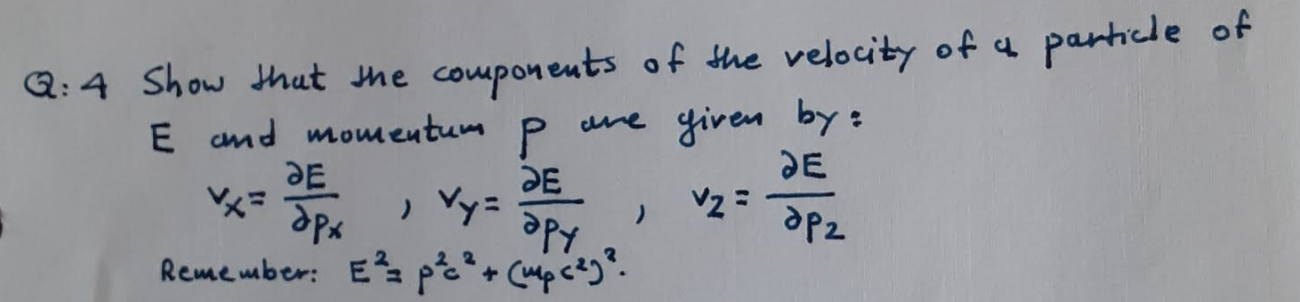 Q:4 Show that the components of the velocity of a particle of
E and momentum p are given by:
Vx = ∂E/∂px , Vy = ∂E/∂py , Vz = ∂E/∂pz
Remember: E² = p²c² + (mpc²)².